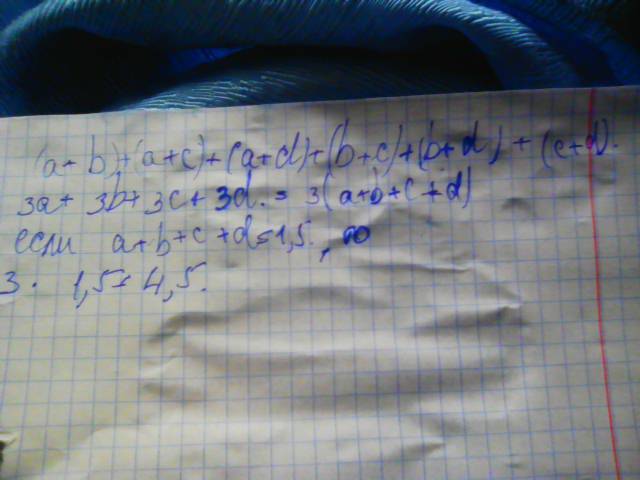 (a+b)+(a+c)+(a+d)+(b+c)+(b+d)+(c+d).
3a+3b+3c+3d.=3(a+b+c+d)
если a+b+c+d=1,5, то
3. 1,5=4,5.